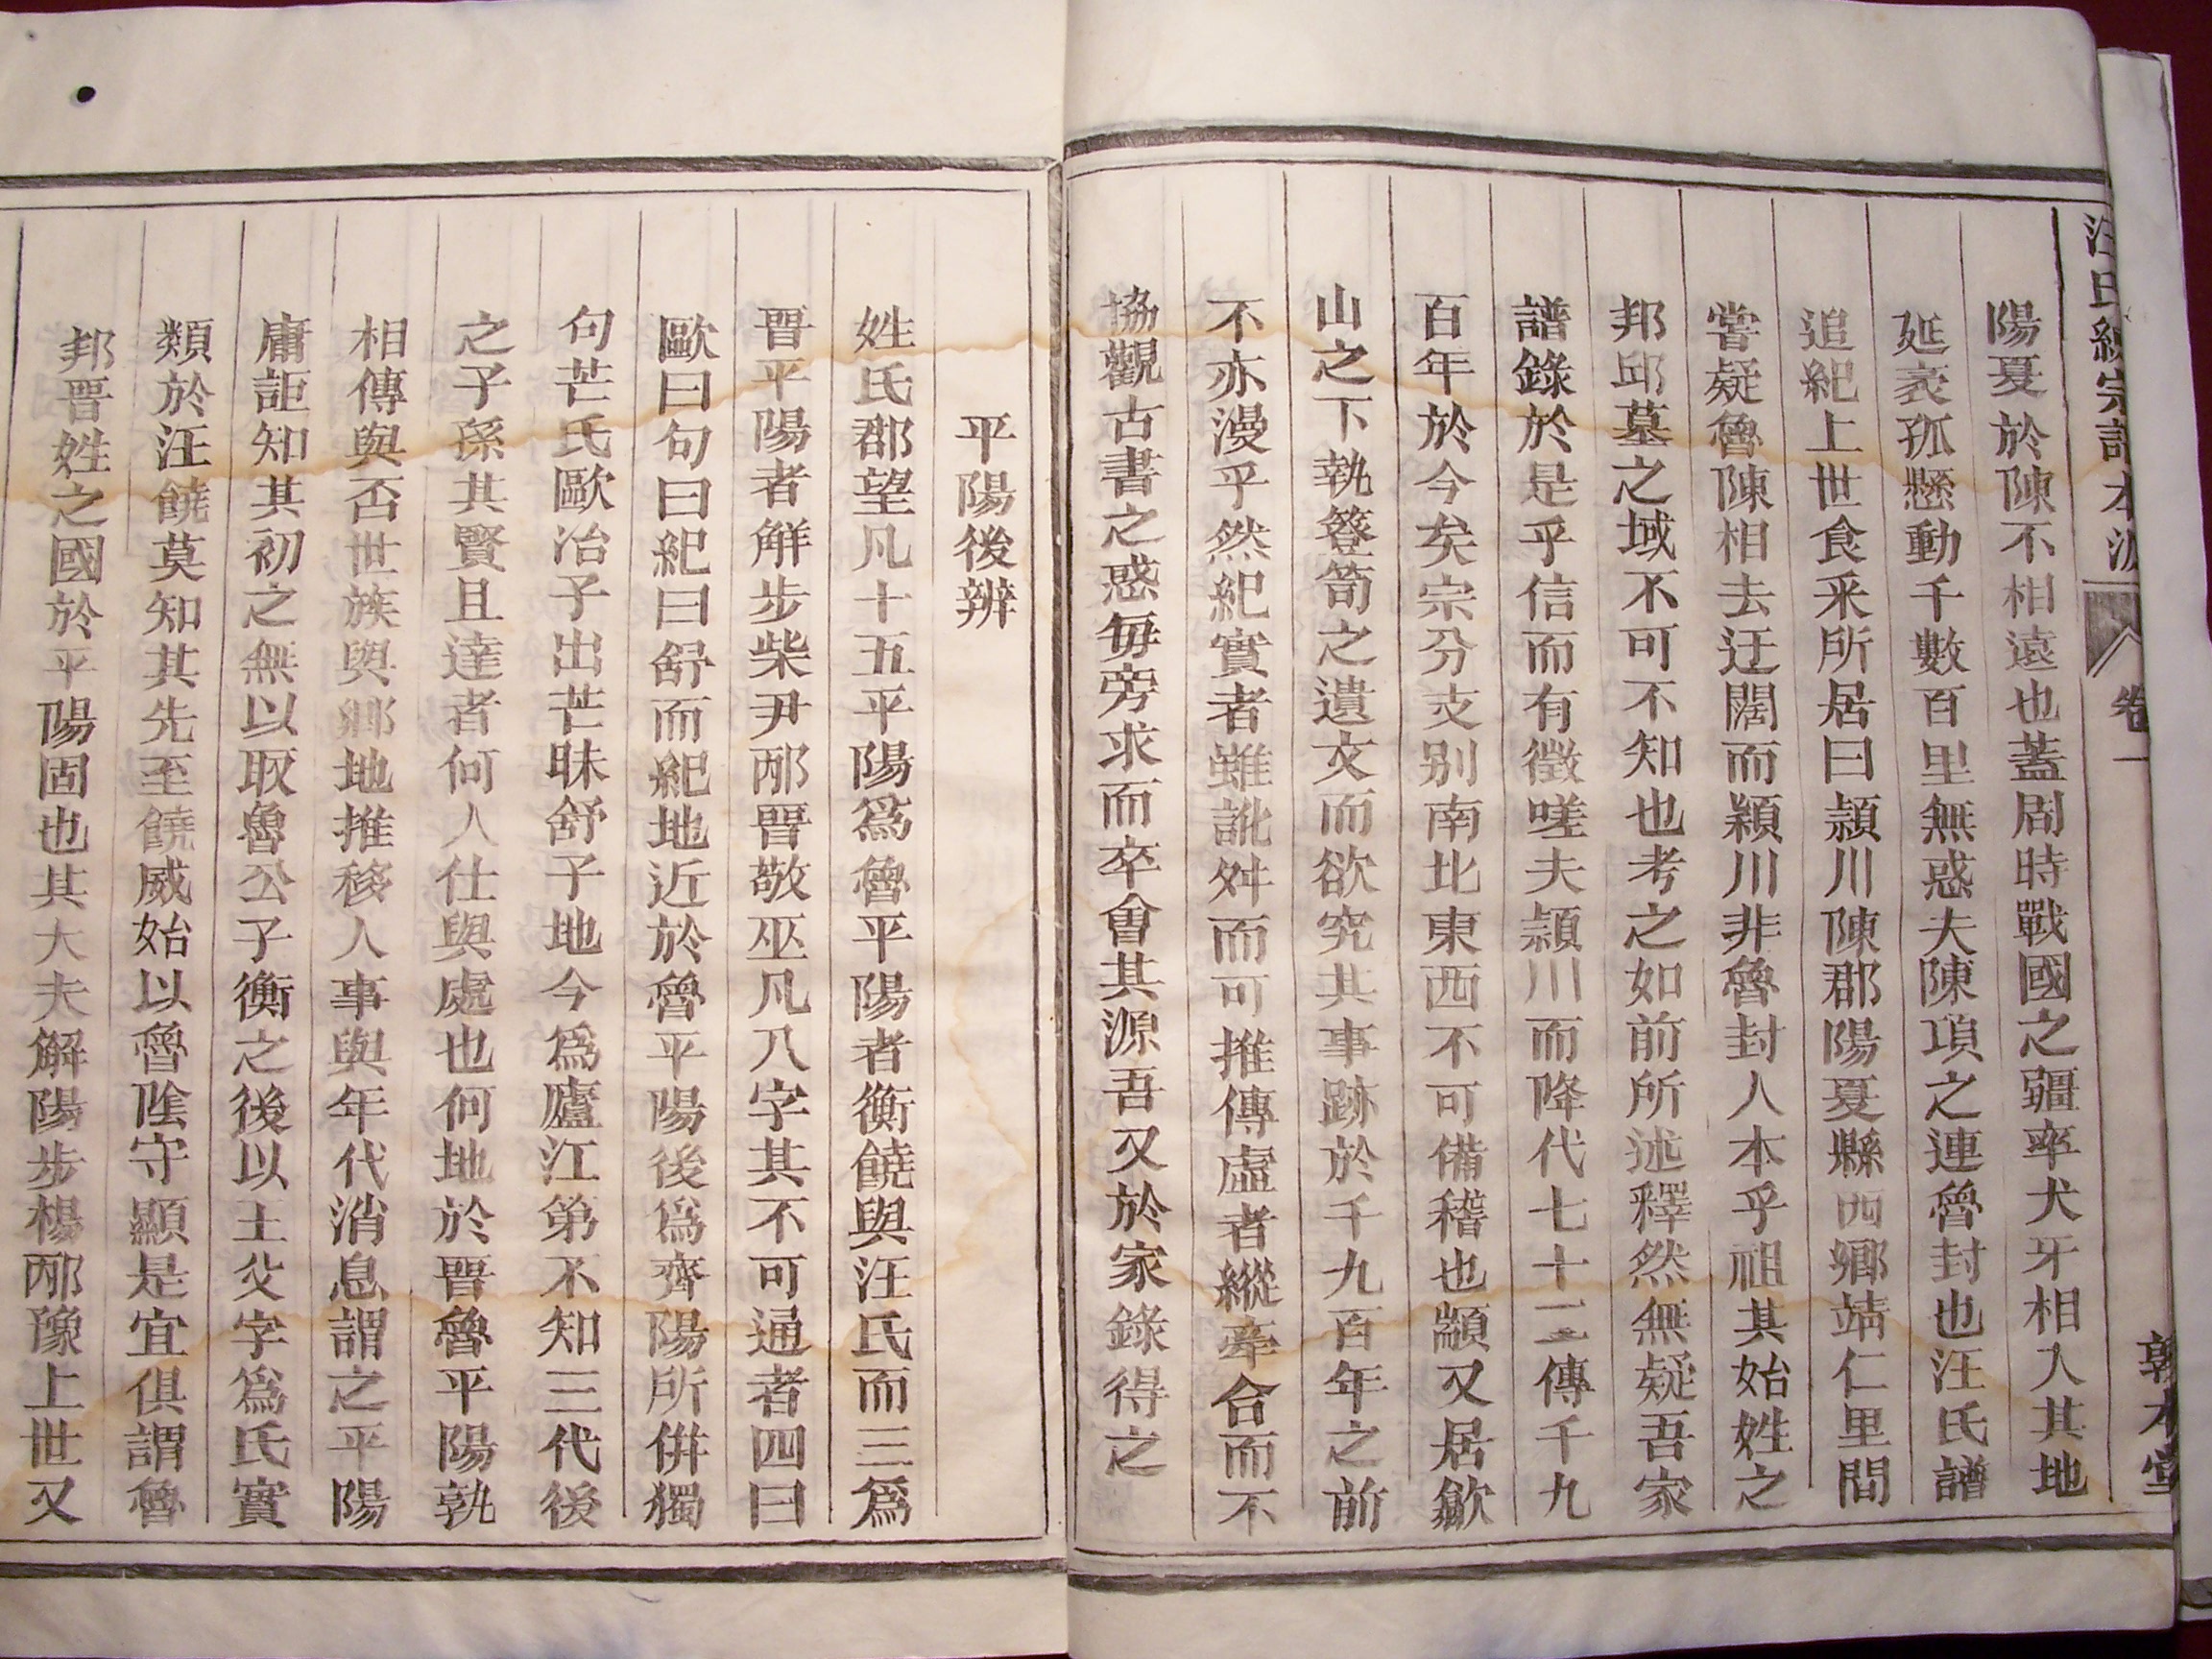 汪氏統宗譜本源 卷一 敦本堂
陽夏於陳不相遠也蓋周時戰國之疆率犬牙相入其地
延袤孤懸動千數百里無惑夫陳項之連魯封也汪氏譜
追紀上世食采所居曰潁川陳郡陽夏縣西鄉靖仁里間
嘗疑魯陳相去迂闊而潁川非魯封人本乎祖其始姓之
邦邱墓之域不可不知也考之如前所述釋然無疑吾家
譜錄於是乎信而有徵嗟夫潁川而降代七十三傳千九
百年於今矣宗分支別南北東西不可備稽也顓又居歙
山之下執簦笥之遺文而欲究其事跡於千九百年之前
不亦漫乎然紀實者雖訛舛而可推傳虛者縱牽合而不
協觀古書之惑每旁求而卒會其源吾又於家錄得之
平陽後辨
姓氏郡望凡十五平陽為魯平陽者衡饒與汪氏而三為
晉平陽者解步柴尹邴晉敬巫凡八字其不可通者四曰
歐曰句曰紀曰舒而紀地近於魯平陽後為齊陽所併獨
句芒氏歐冶子出芒昧舒子地今為廬江第不知三代後
之子孫其賢且達者何人仕與處也何地於晉魯平陽孰
相傳與否世族與鄉地推移人事與年代消息謂之平陽
庸詎知其初之無以取魯公子衡之後以王父字為氏實
類於汪饒莫知其先至饒威始以魯陰守顯是宜俱謂魯
邦晉姓之國於平陽固也其大夫解陽步楊邴豫上世又